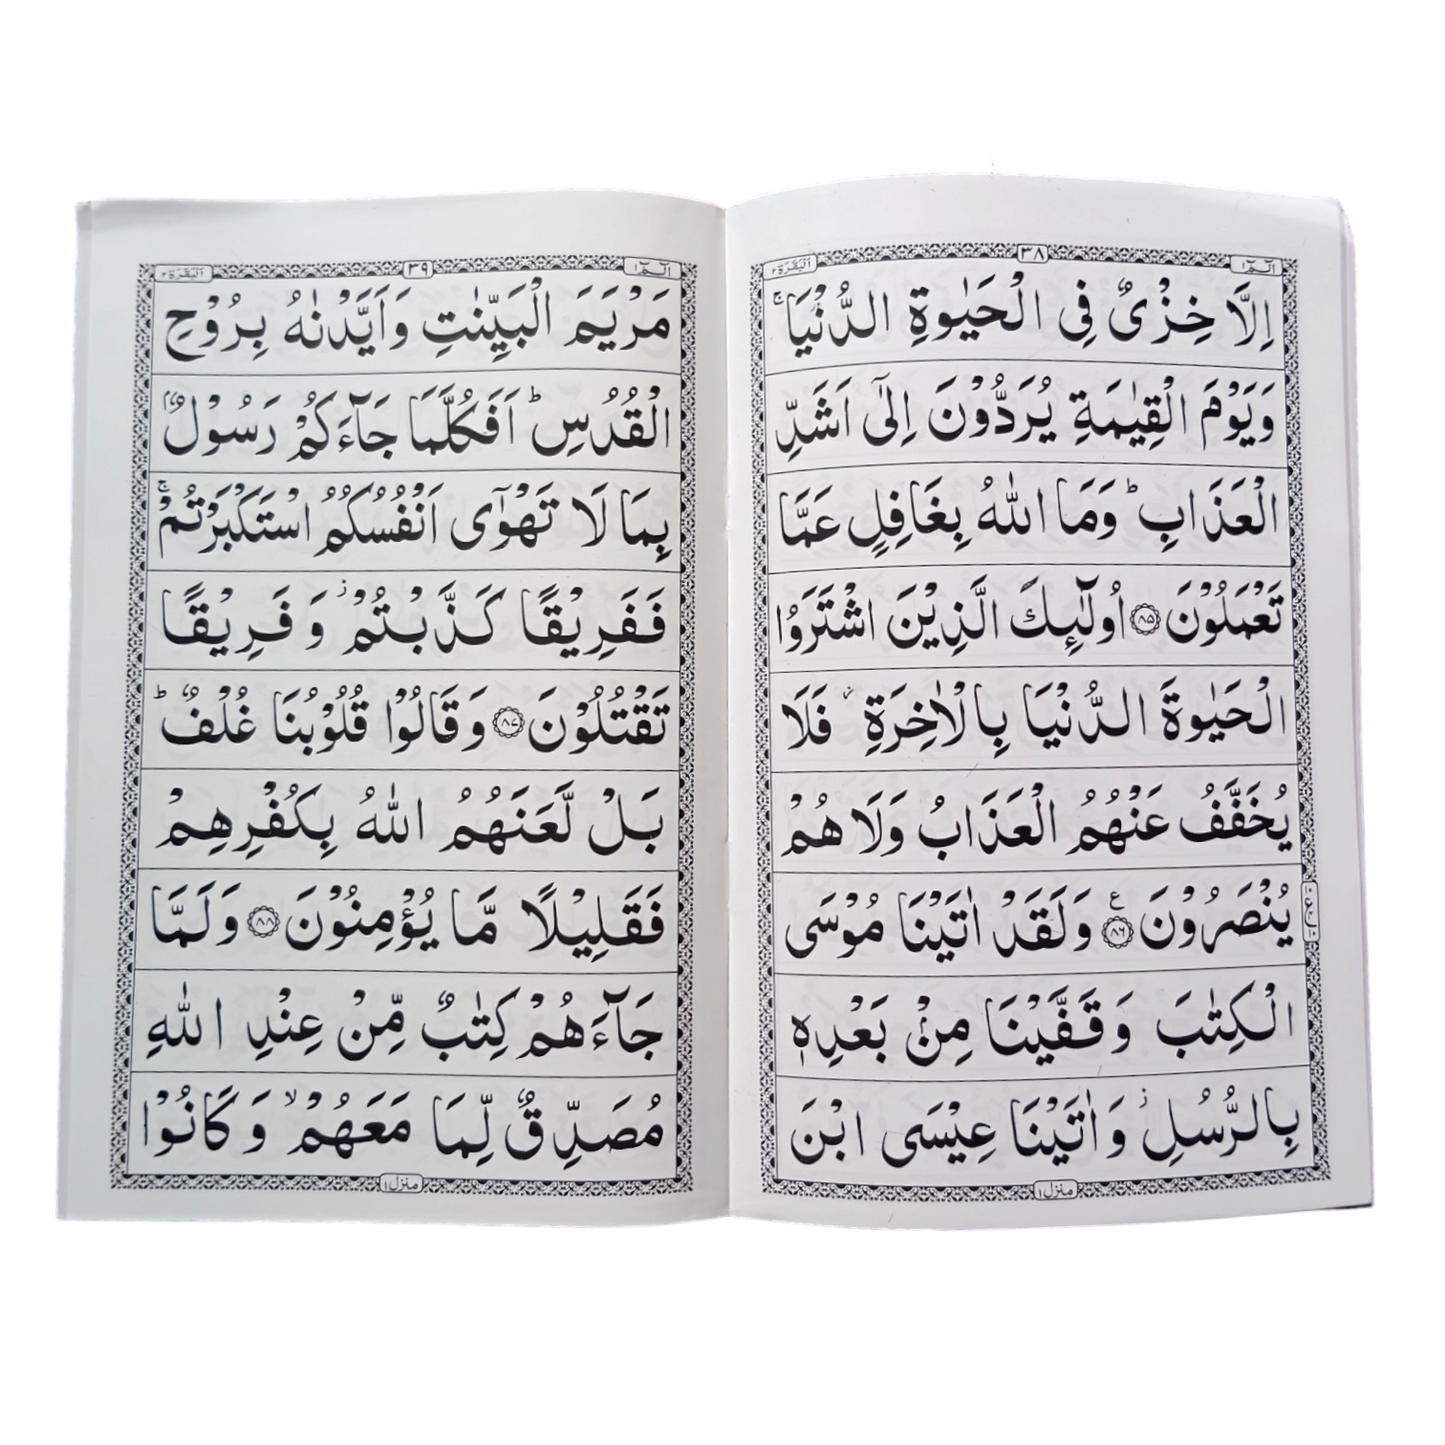 الٓمّٓ ١
٣٨
اَلْبَقَرَة ٢
اِلَّا خِزْىٌ فِى الْحَيٰوةِ الدُّنْيَا ۚ
وَيَوْمَ الْقِيٰمَةِ يُرَدُّوْنَ اِلٰٓى اَشَدِّ
الْعَذَابِ ؕ وَمَا اللّٰهُ بِغَافِلٍ عَمَّا
تَعْمَلُوْنَ ۝٨٥ اُولٰٓئِكَ الَّذِيْنَ اشْتَرَوُا
الْحَيٰوةَ الدُّنْيَا بِالْاٰخِرَةِ ؗ فَلَا
يُخَفَّفُ عَنْهُمُ الْعَذَابُ وَلَا هُمْ
يُنْصَرُوْنَ ۝٨٦ ع وَلَقَدْ اٰتَيْنَا مُوْسَى
الْكِتٰبَ وَقَفَّيْنَا مِنْۢ بَعْدِهٖ
بِالرُّسُلِ ؗ وَاٰتَيْنَا عِيْسَى ابْنَ
منزل ١
الٓمّٓ ١
٣٩
اَلْبَقَرَة ٢
مَرْيَمَ الْبَيِّنٰتِ وَاَيَّدْنٰهُ بِرُوْحِ
الْقُدُسِ ؕ اَفَكُلَّمَا جَآءَكُمْ رَسُوْلٌۢ
بِمَا لَا تَهْوٰٓى اَنْفُسُكُمُ اسْتَكْبَرْتُمْ ۚ
فَفَرِيْقًا كَذَّبْتُمْ ؗ وَفَرِيْقًا
تَقْتُلُوْنَ ۝٨٧ وَقَالُوْا قُلُوْبُنَا غُلْفٌ ؕ
بَلْ لَّعَنَهُمُ اللّٰهُ بِكُفْرِهِمْ
فَقَلِيْلًا مَّا يُؤْمِنُوْنَ ۝٨٨ وَلَمَّا
جَآءَهُمْ كِتٰبٌ مِّنْ عِنْدِ اللّٰهِ
مُصَدِّقٌ لِّمَا مَعَهُمْ ۙ وَكَانُوْا
منزل ١